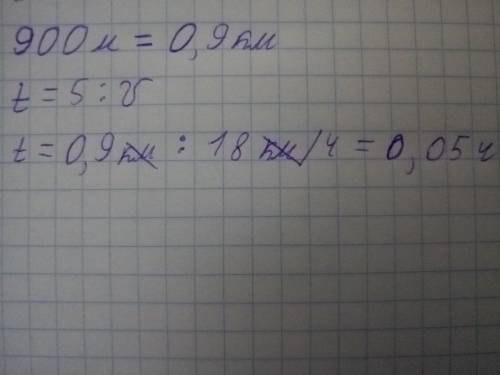 900 м = 0,9 км
t = S : v
t = 0,9 км : 18 км/ч = 0,05 ч